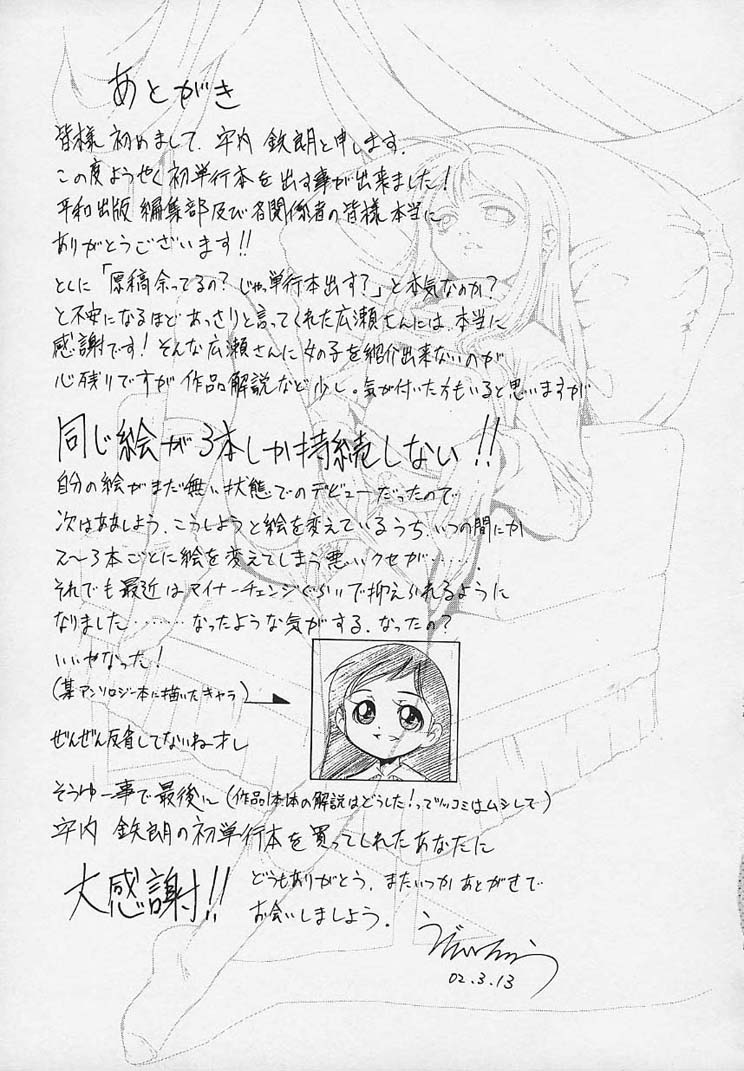 あとがき
皆様 初めまして、宇内 鉄朗と申します。
この度ようやく初単行本を出す事が出来ました!
平和出版 編集部及び各関係者の皆様本当に
ありがとうございます!!
とくに「原稿余ってるの? じゃ単行本出す?」と本気なのか?
と不安になるほどあっさりと言ってくれた広瀬さんには、本当に
感謝です! そんな広瀬さんに女の子を紹介出来ないのが
心残りですが作品解説など少し。気が付いた方もいると思いますが
同じ絵が3本しか持続しない!!
自分の絵がまだ無い状態でのデビューだったので
次はああしよう、こうしようと絵を変えているうち、いつの間にか
2〜3本ごとに絵を変えてしまう悪いクセが……。
それでも最近はマイナーチェンジぐらいで抑えられるように
なりました………なったような気がする、なったの?
いいやなった!
(某アンソロジー本に描いたキャラ)
ぜんぜん反省してないねオレ
そうゆー事で最後に(作品本体の解説はどうした!ってツッコミはムシして)
宇内 鉄朗の初単行本を買ってくれたあなたに
大感謝!!
どうもありがとう、またいつかあとがきで
お会いしましょう。
02.3.13